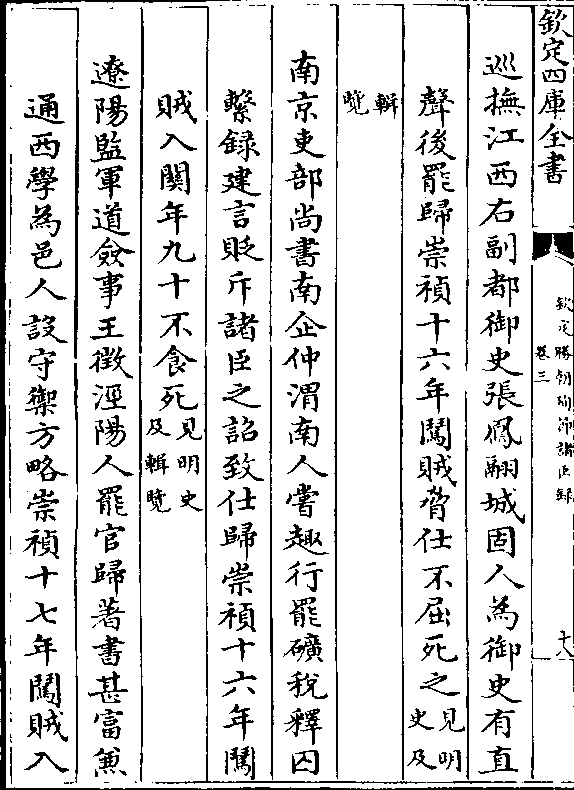 欽定四庫全書
欽定勝朝殉節諸臣録
卷三
十八
巡撫江西右副都御史張鳳翮城固人為御史有直
聲後罷歸崇禎十六年闖賊脅仕不屈死之見明史及
輯覽
南京吏部尚書南企仲渭南人嘗趣行罷礦税釋囚
繫録建言貶斥諸臣之詔致仕歸崇禎十六年闖
賊入關年九十不食死見明史及輯覽
遼陽監軍道僉事王徴涇陽人罷官歸著書甚富兼
通西學為邑人設守禦方略崇禎十七年闖賊入